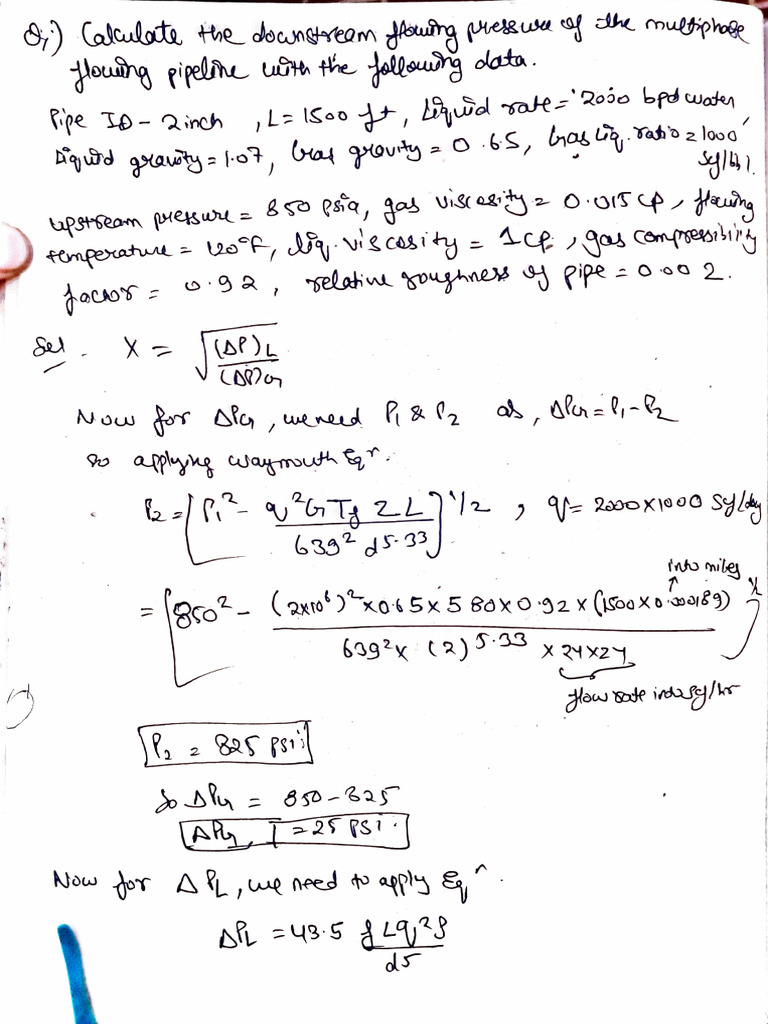 Q,:) Calculate the downstream flowing pressure of the multiphase
flowing pipeline with the following data.
Pipe ID - 2 inch , L = 1500 ft , Liquid rate = 2000 bpd water,
Liquid gravity = 1.07, Gas gravity = 0.65, Gas Liq. ratio = 1000
Scf/bbl.
Upstream pressure = 850 psia, gas viscosity = 0.015 cp, flowing
temperature = 120°F, liq. viscosity = 1 cp, gas compressibility
factor = 0.92, relative roughness of pipe = 0.002.
Sol. X = √((ΔP)L/(ΔP)G)
Now for ΔPG, we need P1 & P2 as, ΔPG = P1 - P2
So applying waymouth Eqn.
P2 = [P1² - q²GTf ZL / 639² d5.33]^1/2 , q = 2000x1000 Scf/day
into miles
= [850² - (2x10⁶)² x 0.65 x 580 x 0.92 x (1500 x 0.000189) / 639² x (2)^5.33 x 24x24]^½
flow rate into scf/hr
P2 = 825 psi
So ΔPG = 850 - 825
ΔPG = 25 psi.
Now for ΔPL, we need to apply Eqn.
ΔPL = 43.5 fLq²ρ / d5